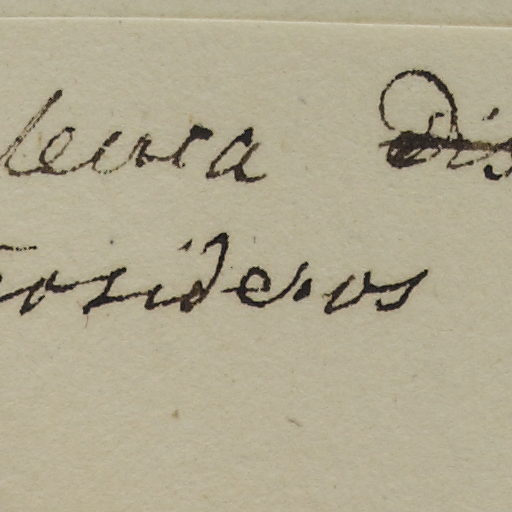 leuca Dis
rosideros